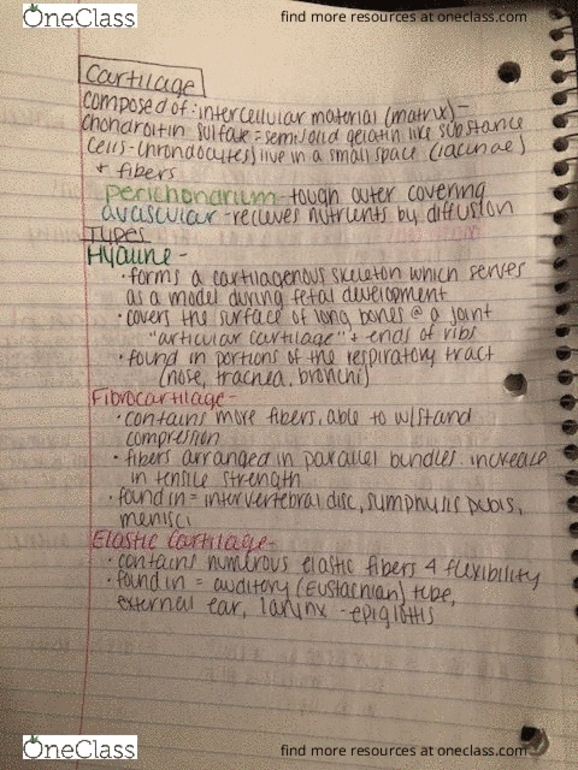 OneClass
find more resources at oneclass.com
Cartilage
composed of: intercellular material (matrix) -
chondroitin sulfate = semisolid gelatin like substance
cells - chrondocytes) live in a small space (lacunae)
+ fibers
perichondrium - tough outer covering
avascular - recieves nutrients by diffusion
Types
Hyaline -
· forms a cartilagenous skeleton which serves
as a model during fetal development
· covers the surface of long bones @ a joint
"articular cartilage" + ends of ribs
· found in portions of the respiratory tract
(nose, trachea, bronchi)
Fibrocartilage -
· contains more fibers, able to w/stand
compression
· fibers arranged in parallel bundles. increase
in tensile strength
· found in = intervertebral disc, sumphysis pubis,
menisci
Elastic Cartilage -
· contains numerous elastic fibers 4 flexibility
· found in = auditory (Eustachian) tube,
external ear, larynx - epiglottis
OneClass
find more resources at oneclass.com